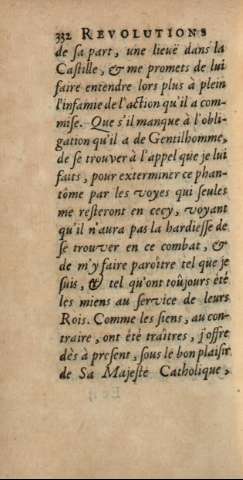 332 REVOLUTIONS
de sa part, une lieuë dans la
Castille, & me promets de lui
faire entendre lors plus à plein
l'infamie de l'action qu'il a com-
mise. Que s'il manque à l'obli-
gation qu'il a de Gentilhomme,
de se trouver à l'appel que je lui
faits, pour exterminer ce phan-
tôme par les voyes qui seules
me resteront en cecy, voyant
qu'il n'aura pas la hardiesse de
se trouver en ce combat, &
de m'y faire paroître tel que je
suis, & tel qu'ont toûjours été
les miens au service de leurs
Rois. Comme les siens, au con-
traire, ont été traîtres, j'offre
dès à present, sous le bon plaisir
de Sa Majesté Catholique,